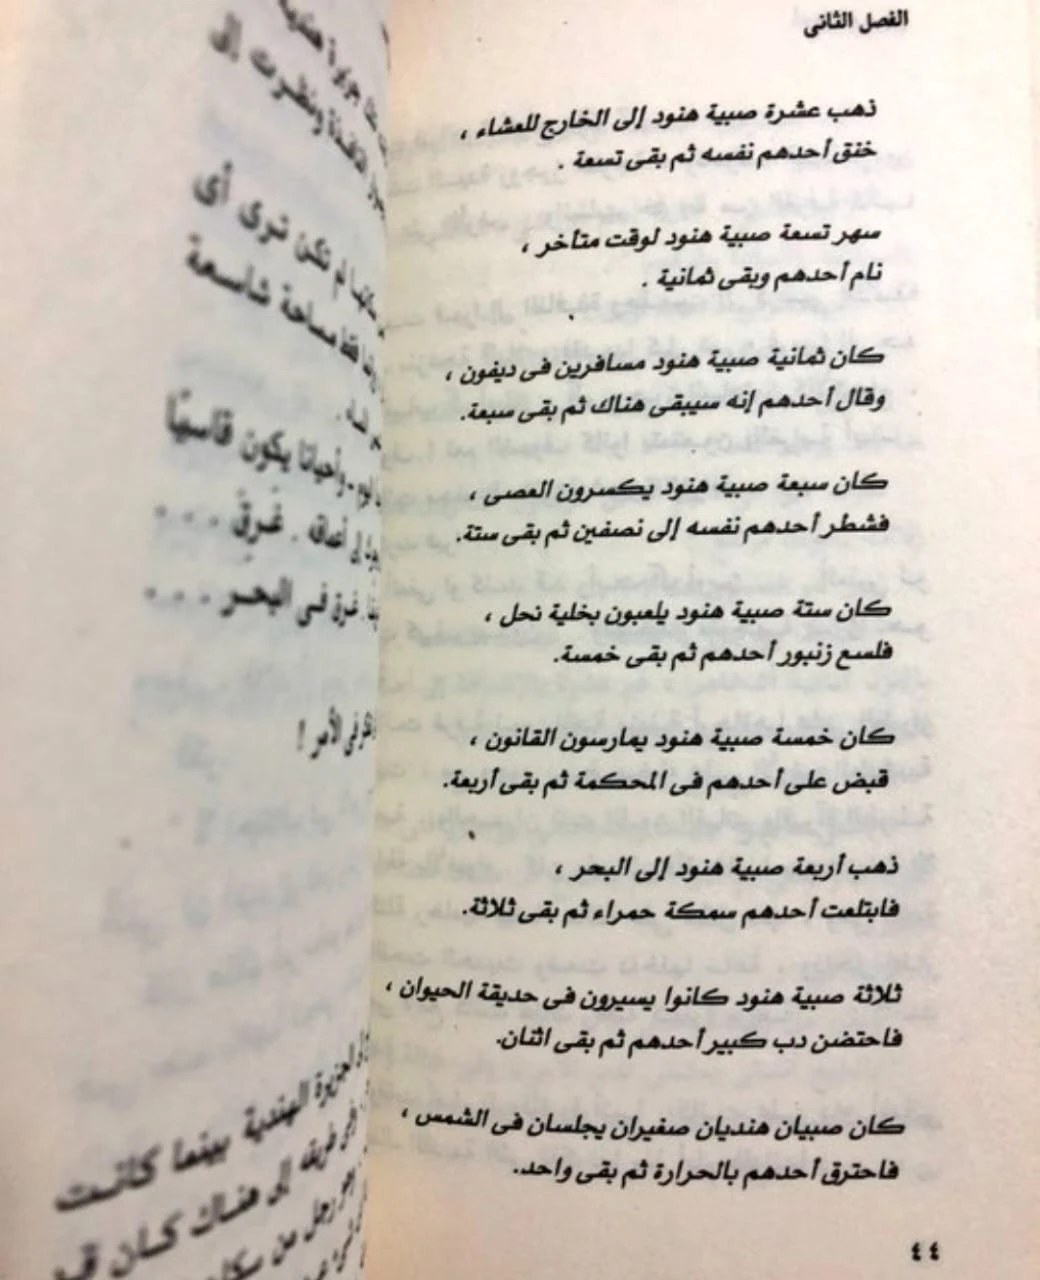 الفصل الثانى
ذهب عشرة صبية هنود إلى الخارج للعشاء ،
خنق أحدهم نفسه ثم بقى تسعة .
سهر تسعة صبية هنود لوقت متأخر ،
نام أحدهم وبقى ثمانية .
كان ثمانية صبية هنود مسافرين فى ديفون ،
وقال أحدهم إنه سيبقى هناك ثم بقى سبعة.
كان سبعة صبية هنود يكسرون العصى ،
فشطر أحدهم نفسه إلى نصفين ثم بقى ستة.
كان ستة صبية هنود يلعبون بخلية نحل ،
فلسع زنبور أحدهم ثم بقى خمسة.
كان خمسة صبية هنود يمارسون القانون ،
قبض على أحدهم فى المحكمة ثم بقى أربعة.
ذهب أربعة صبية هنود إلى البحر ،
فابتلعت أحدهم سمكة حمراء ثم بقى ثلاثة.
ثلاثة صبية هنود كانوا يسيرون فى حديقة الحيوان ،
فاحتضن دب كبير أحدهم ثم بقى اثنان.
كان صبيان هنديان صغيران يجلسان فى الشمس ،
فاحترق أحدهم بالحرارة ثم بقى واحد.
٤٤
ونظرت إلى
لم تكن ترى أى
مساحة شاسعة
وأحيانا يكون قاسيًا
إلى أعماقه . غرق . . .
غرق فى البحر . . .
فى الأمر !
الجزيرة الهندية بينما كانت
طريقه إلى هناك كان
رجل من